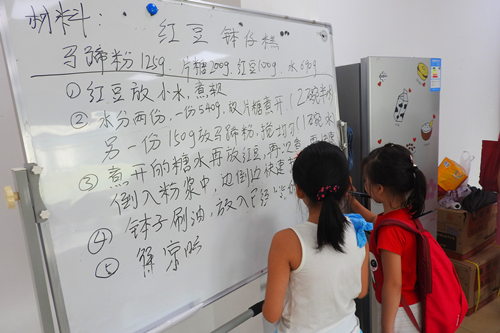 材料:
红豆钵仔糕
马蹄粉125g、片糖200g、红豆100g、水690g
①红豆放小水,煮软
②水分两份,一份540g,放片糖煮开(2碗半水
另一份150g放马蹄粉,搅均匀(1碗水)
③煮开的糖水再放红豆,再
倒入粉浆中,边倒边快
④钵子刷油,放入
⑤